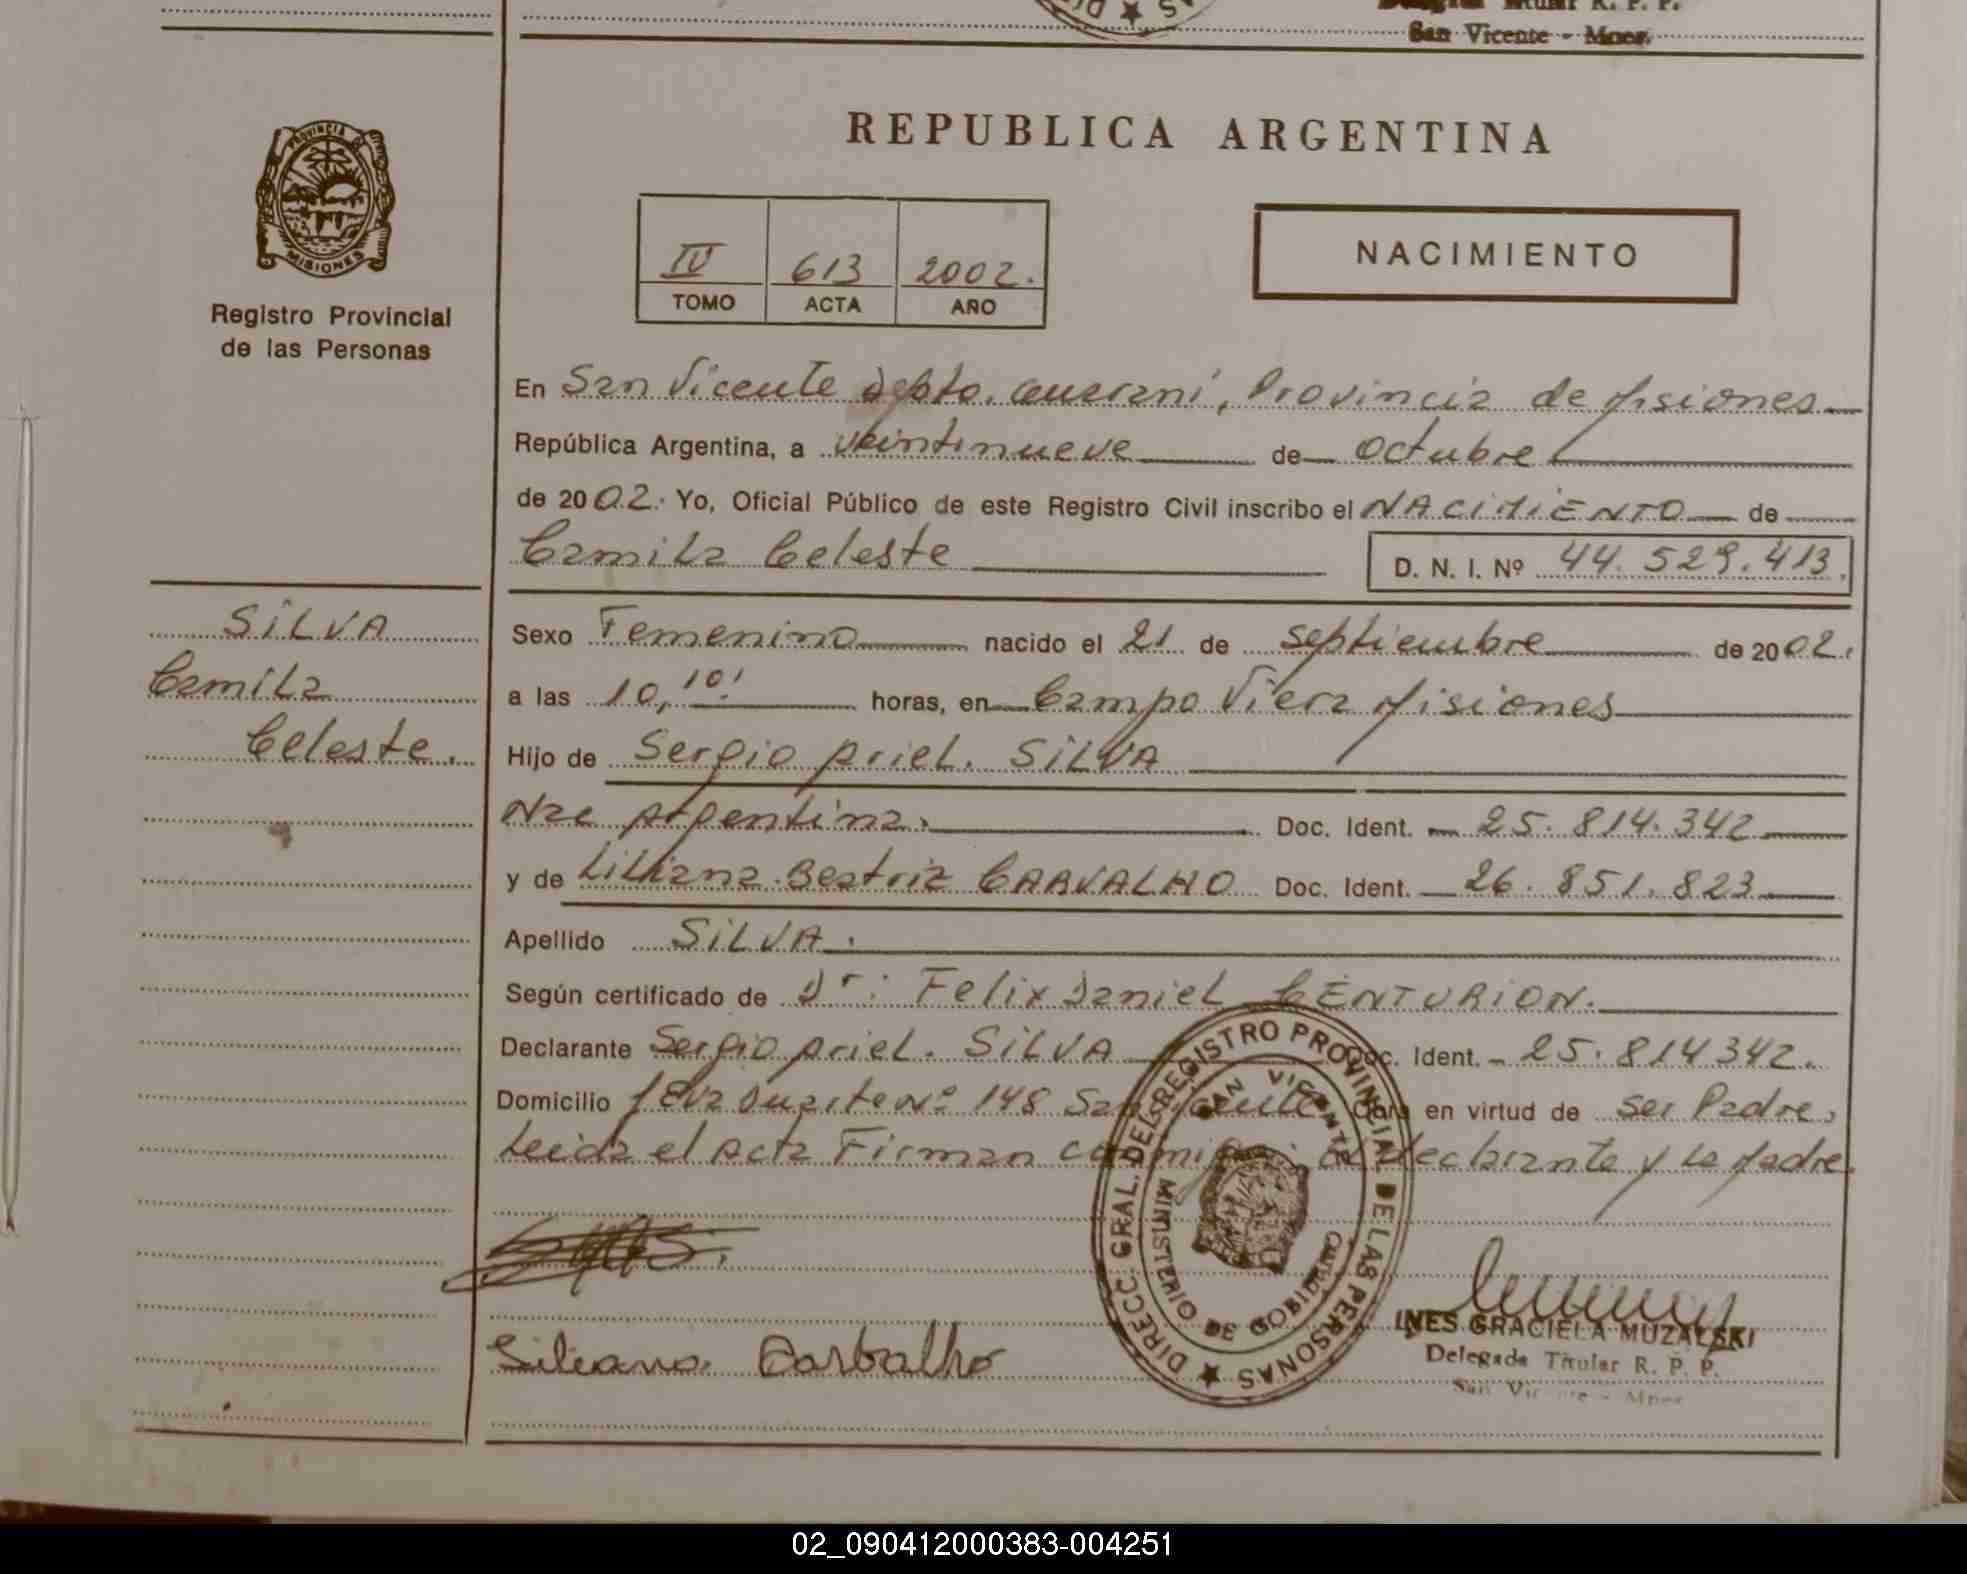 Delegada Titular R. P. P.
San Vicente - Mnes.
PROVINCIA DE
MISIONES
Registro Provincial
de las Personas
REPUBLICA ARGENTINA
IV 613 2002.
TOMO ACTA AÑO
NACIMIENTO
En San Vicente Depto. Guaraní, Provincia de Misiones
República Argentina, a veintinueve de octubre
de 2002. Yo, Oficial Público de este Registro Civil inscribo el NACIMIENTO de
Camila Celeste D. N. I. Nº 44.529.413.
SILVA
Camila
Celeste.
Sexo Femenino nacido el 21 de septiembre de 2002.
a las 10,10' horas, en Campo Viera Misiones
Hijo de Sergio Ariel. SILVA
Nac Argentina. Doc. Ident. 25.814.342
y de Liliana Beatriz CARVALHO Doc. Ident. 26.851.823
Apellido SILVA.
Según certificado de Dr: Felix Daniel CENTURION.
Declarante Sergio Ariel. SILVA Doc. Ident. 25.814342.
Domicilio Eva Duarte Nº 148 San Vicente Obra en virtud de ser Padre,
Leida el Acta Firman conmigo el declarante y la Madre.
DIRECC. GRAL. DEL REGISTRO PROVINCIAL DE LAS PERSONAS
SAN VICENTE
MINISTERIO DE GOBIERNO
Liliana Carbalho
INES GRACIELA MUZALSKI
Delegada Titular R. P. P.
San Vicente - Mnes
02_090412000383-004251